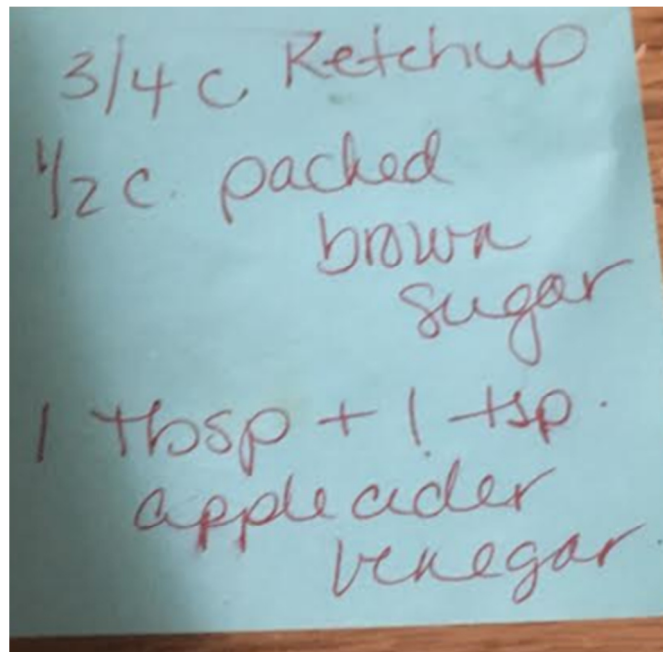 3/4 c Ketchup
1/2 c. packed
brown
sugar
1 tbsp + 1 tsp.
apple cider
venegar